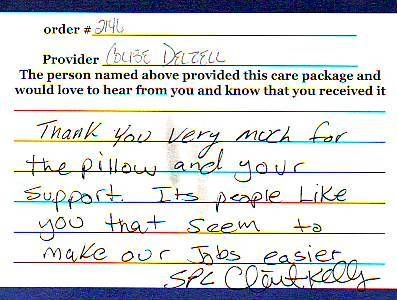 order # 2146
Provider Colise Delzell
The person named above provided this care package and
would love to hear from you and know that you received it
Thank you very much for
the pillow and your
Support. Its people Like
you that Seem to
make our Jobs easier
SPC Kelly